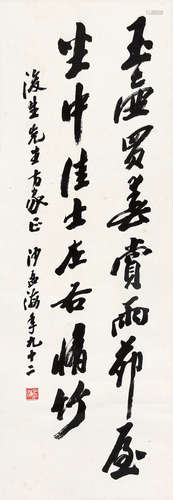 玉壺買春賞雨茆屋
坐中佳士左右脩竹
浚生先生方家正 沙孟海年九十二